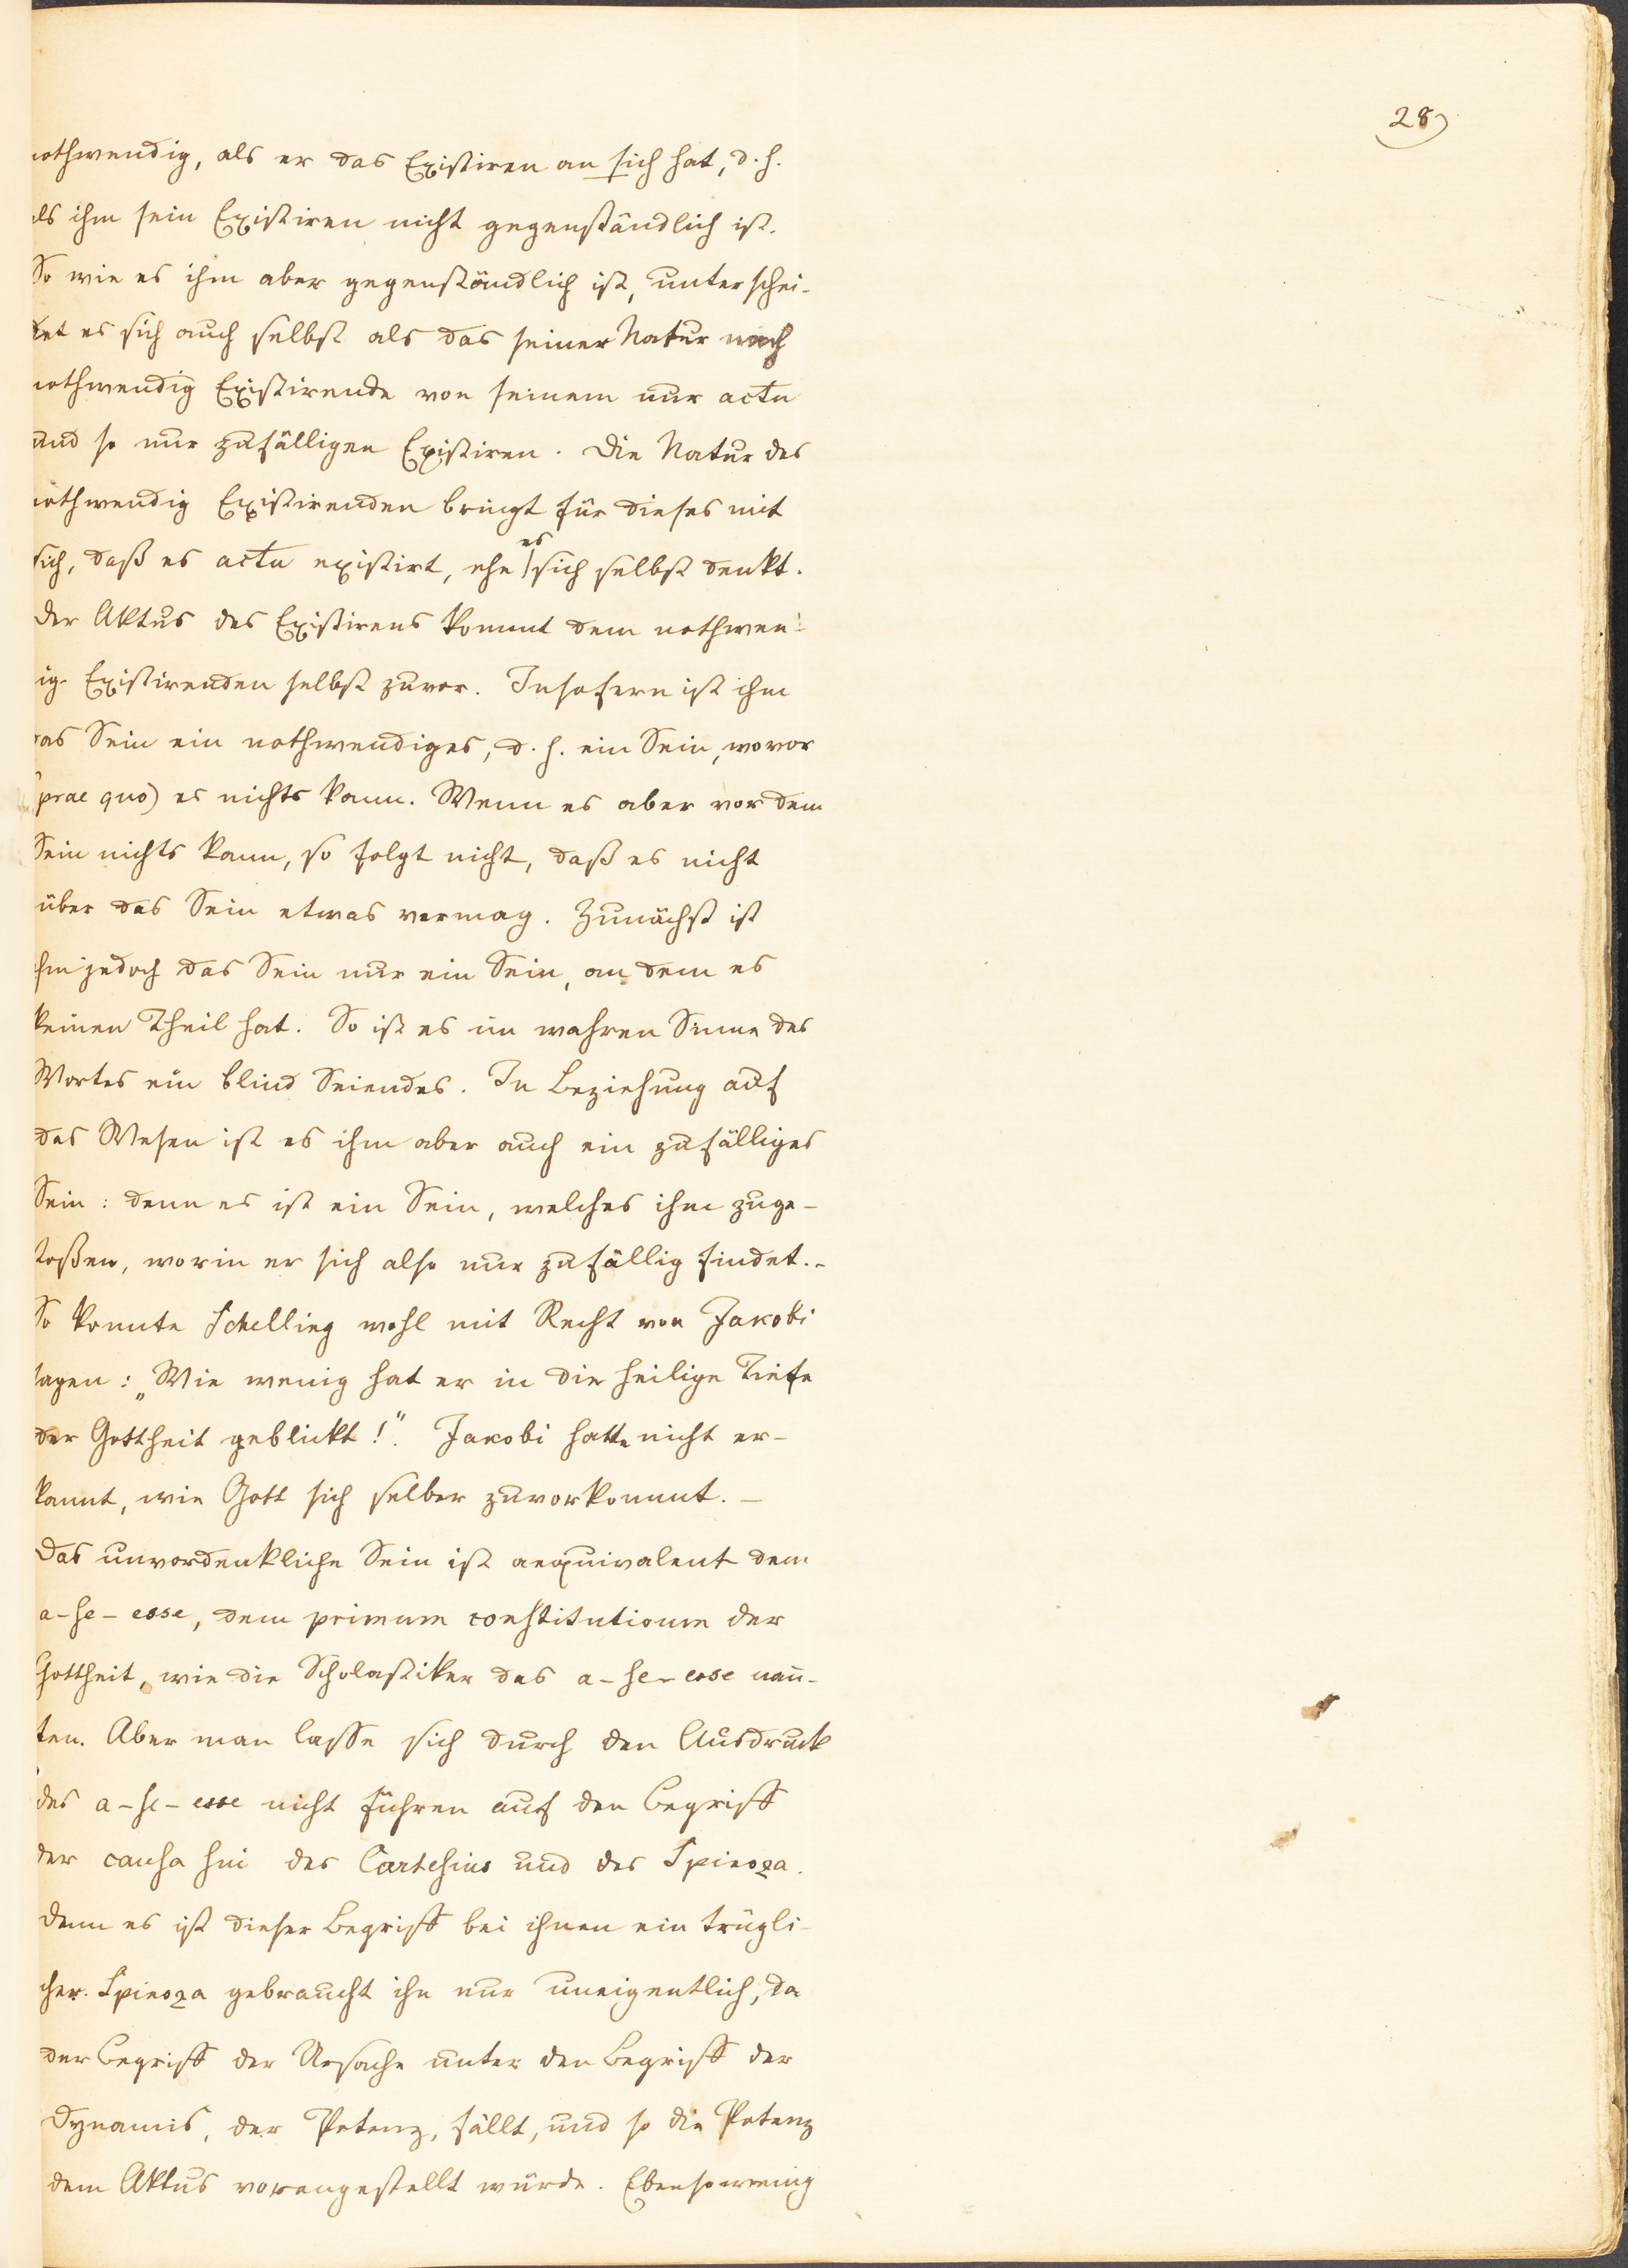 28)
nothwendig, als er das Existiren an sich hat, d. h.
als ihm sein Existiren nicht gegenständlich ist.
So wie es ihm aber gegenständlich ist, unterschei-
det es sich auch selbst als das seiner Natur nach
nothwendig Existirende von seinem nur actu
und so nur zufälligen Existiren. Die Natur des
nothwendig Existirenden bringt für dieses mit
sich, daß es actu existirt, ehe es sich selbst denkt.
Der Aktus des Existirens kommt dem nothwen-
ig Existirenden selbst zuvor. Insofern ist ihm
das Sein ein nothwendiges, d. h. ein Sein, wovor
(prae quo) es nichts kann. Wenn es aber vor dem
Sein nichts kann, so folgt nicht, daß es nicht
über das Sein etwas vermag. Zunächst ist
ihm jedoch das Sein nur ein Sein, an dem es
keinen Theil hat. So ist es im wahren Sinne des
Wortes ein blind Seiendes. In Beziehung auf
das Wesen ist es ihm aber auch ein zufälliges
Sein: denn es ist ein Sein, welches ihm zuge-
stoßen, worin er sich also nur zufällig findet. –
So konnte Schelling wohl mit Recht von Jakobi
sagen: „Wie wenig hat er in die heilige Tiefe
der Gottheit geblickt!". Jakobi hatte nicht er-
kannt, wie Gott sich selber zuvorkommt. –
Das unvordenkliche Sein ist aequivalent dem
a-se-esse, dem primum constitutivum der
Gottheit, wie die Scholastiker das a-se-esse nañ-
ten. Aber man lasse sich durch den Ausdruck
des a-se-esse nicht führen auf den Begriff
der causa sui des Cartesius und des Spinoza.
Denn es ist dieser Begriff bei ihnen ein trügli-
cher. Spinoza gebraucht ihn nur uneigentlich, da
der Begriff der Ursache unter den Begriff der
Dynamis, der Potenz, fällt, und so die Potenz
dem Aktus vorangestellt würde. Ebensowenig